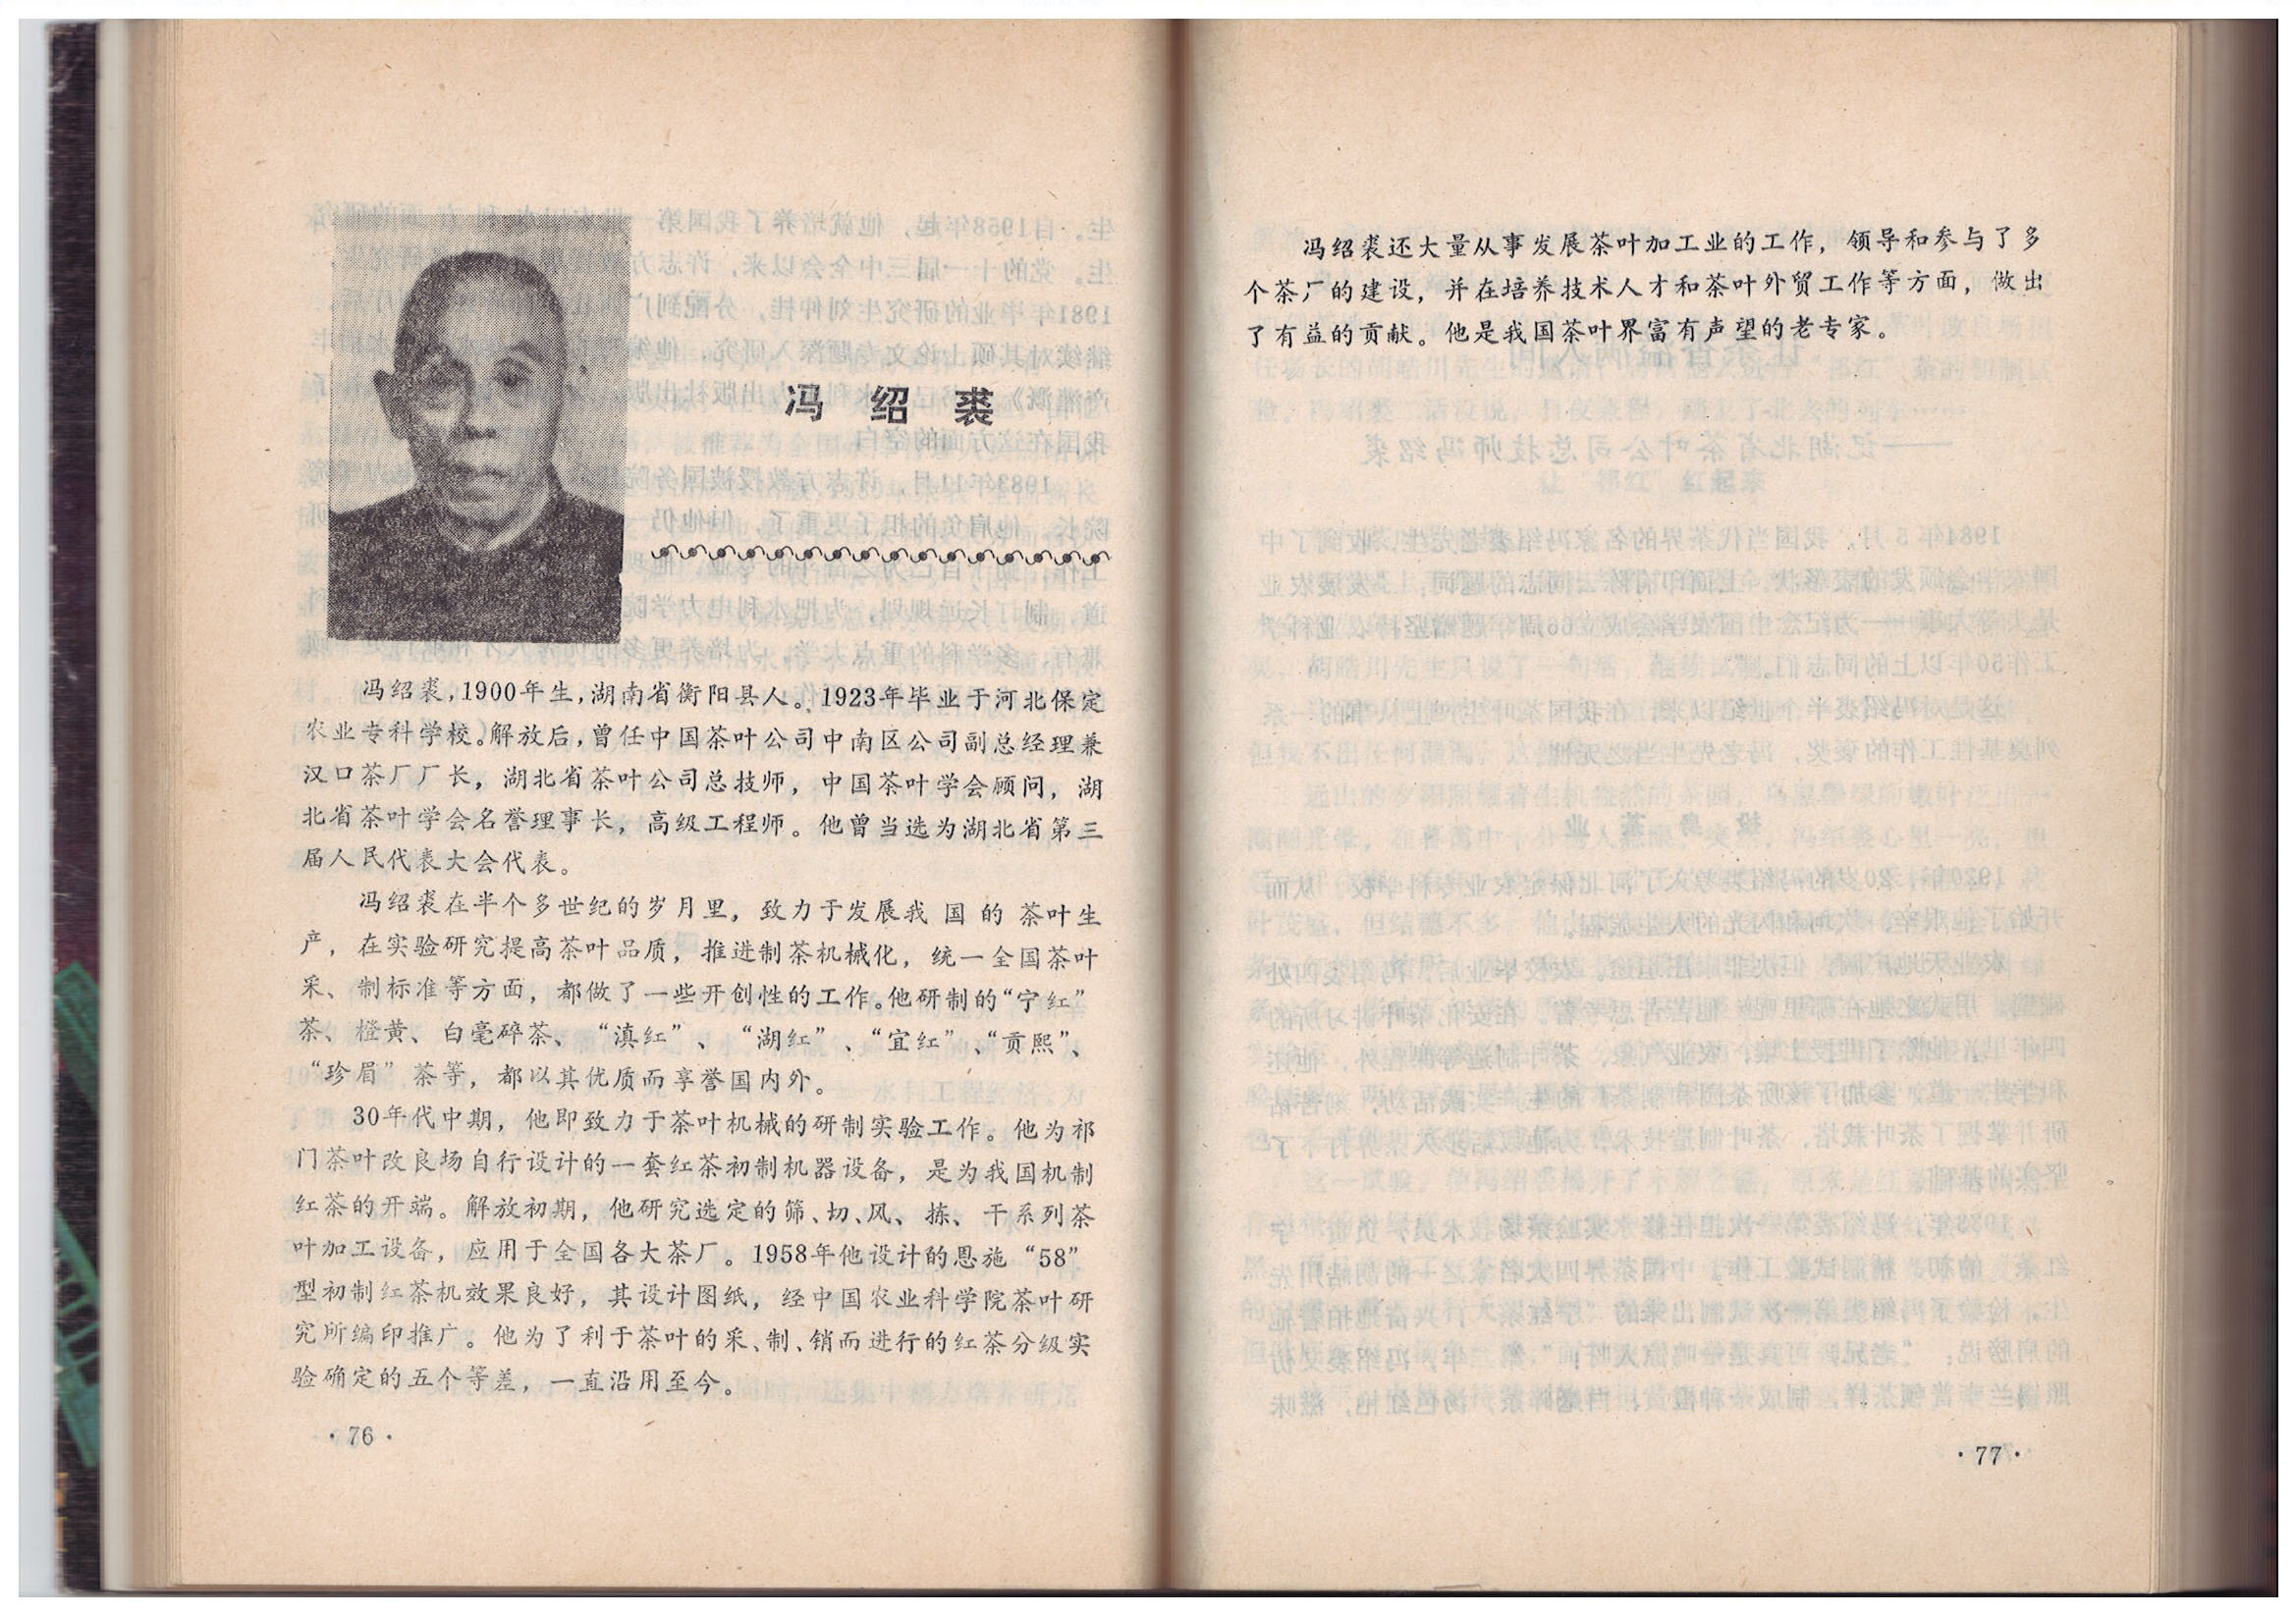 冯绍裘
冯绍裘,1900年生,湖南省衡阳县人。1923年毕业于河北保定
农业专科学校。解放后,曾任中国茶叶公司中南区公司副总经理兼
汉口茶厂厂长,湖北省茶叶公司总技师,中国茶叶学会顾问,湖
北省茶叶学会名誉理事长,高级工程师。他曾当选为湖北省第三
届人民代表大会代表。
冯绍裘在半个多世纪的岁月里,致力于发展我国的茶叶生
产,在实验研究提高茶叶品质,推进制茶机械化,统一全国茶叶
采、制标准等方面,都做了一些开创性的工作。他研制的“宁红”
茶、橙黄、白毫碎茶、“滇红”、“湖红”、“宜红”、“贡熙”、
“珍眉”茶等,都以其优质而享誉国内外。
30年代中期,他即致力于茶叶机械的研制实验工作。他为祁
门茶叶改良场自行设计的一套红茶初制机器设备,是为我国机制
红茶的开端。解放初期,他研究选定的筛、切、风、拣、干系列茶
叶加工设备,应用于全国各大茶厂。1958年他设计的恩施“58”
型初制红茶机效果良好,其设计图纸,经中国农业科学院茶叶研
究所编印推广。他为了利于茶叶的采、制、销而进行的红茶分级实
验确定的五个等差,一直沿用至今。
·76·
冯绍裘还大量从事发展茶叶加工业的工作,领导和参与了多
个茶厂的建设,并在培养技术人才和茶叶外贸工作等方面,做出
了有益的贡献。他是我国茶叶界富有声望的老专家。
·77·